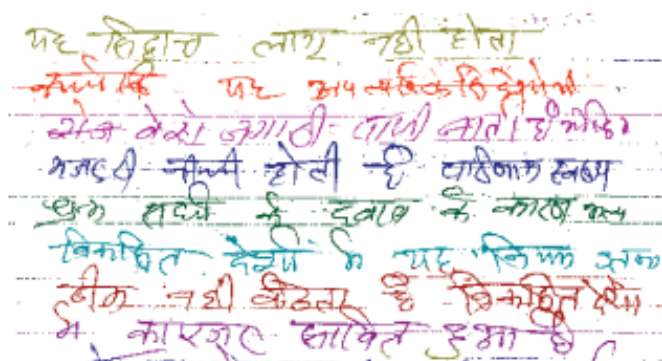 यह सिद्धान्त लागू नही होता
क्योंकि यह अल्प विकसित देशों में
रोज बेरोजगारी पायी जाती है
मजदूरी नीची होती है परिणाम स्वरूप
श्रम शक्ति के दबाव के कारण अल्प
विकसित देशों में यह नियम
ठीक नही बैठता है विकसित देशों
में कारगर साबित हुआ है